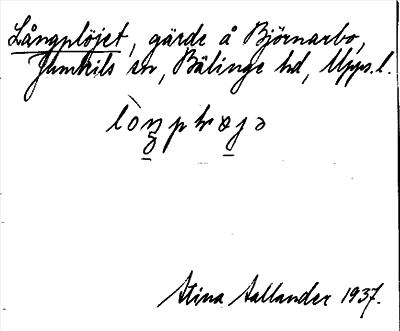 Långplöjet, gärde å Björnarbo,
Jumkils sn, Bälinge hd, Upps. l.
Stina Aallander 1937.